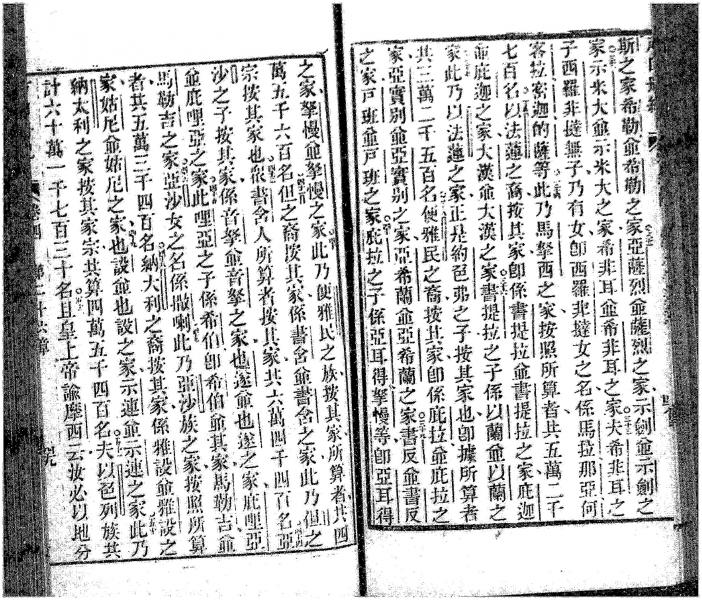 斯之家希勒爺希勒之家亞薩烈爺薩烈之家示劍爺示劍之
家示米大爺示米大之家希非耳爺希非耳之家夫希非耳之
子西羅非撻無子乃有女卽西羅非撻女之名係馬拉那亞何
客拉密迦的薩等此乃馬拏西之家按照所算者共五萬二千
七百名以法蓮之裔按其家卽係書提拉爺書提拉之家庇迦
爺庇迦之家大漢爺大漢之家書提拉之子係以蘭爺以蘭之
家此乃以法蓮之家正是約色弗之子按其家也卽據所算者
共三萬二千五百名便雅民之裔按其家卽係庇拉爺庇拉之
家亞實別爺亞實別之家亞希蘭爺亞希蘭之家書反爺書反
之家戶班爺戶班之家庇拉之子係亞耳得拏慢等卽亞耳得
之家拏慢爺拏慢之家此乃便雅民之族按其家所算者共四
萬五千六百名但之裔按其家係書含爺書含之家此乃但之
宗按其家也依書含人所算者按其家共六萬四千四百名亞
沙之子按其家係音拏爺音拏之家也遂爺也遂之家庇哩亞
爺庇哩亞之家此哩亞之子係希伯卽希伯爺其家馬勒吉爺
馬勒吉之家亞沙女之名係撒喇此乃亞沙族之家按照所算
者共五萬三千四百名納大利之裔按其家係雅設爺雅設之
家姑尼爺姑尼之家也設爺也設之家示連爺示連之家此乃
納太利之家按其家宗共算四萬五千四百名夫以色列族共
計六十萬一千七百三十名且皇上帝諭摩西云汝必以地分
卷四 第二十六章